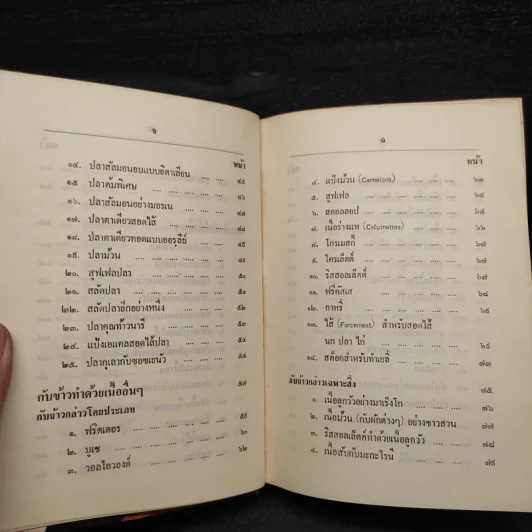 หน้า
๑๔. ปลาสัลมอนอบแบบอิตาเลียน .... .... ๔๕
๑๕ ปลาต้มพิเศษ .... .... .... ๔๖
๑๖. ปลาสัลมอนอย่างมอรเน .... .... ๔๗
๑๗. ปลาตาเดียวสอดไส้ .... .... ....
๑๘. ปลาตาเดียวทอดแบบออร์ลีย์ .... ....
๑๙. ปลาม้วน .... .... .... ....
๒๐. สูฟเฟลปลา .... .... .... ....
๒๑. สลัดปลา .... .... .... ....
๒๒. สลัดปลาอีกอย่างหนึ่ง .... .... ....
๒๓. ปลาคุณท้าวนารี .... .... ....
๒๔. แป้งเอแคลสอดไส้ปลา .... ....
๒๕. ปลากุเลากับซอซเยนัว .... ....
กับข้าวทำด้วยเนื้ออื่นๆ ๕๗
กับข้าวกล่าวโดยประเภท
๑. ฟริตเตอร .... .... .... .... ๕๙
๒. บูเช .... .... .... .... ๖๐
๓. วอลโอวองต์ .... .... .... ๖๒
ฅ
หน้า
๔. แป้งม้วน (Cannelons) .... .... ๖๓
๕. สูฟเฟล .... .... .... .... ๖๔
๖. สคอลลอป .... .... .... ๖๔
๗. เนื้อร่างแห (Crépinettes) .... .... ๖๖
๘. โกรเมสกี้ .... .... .... ๖๗
๙. โครเล็ตต์ .... .... .... ๖๗
๑๐. ริสสอลเล็ตต์ .... .... .... ๖๗
๑๑. ฟริคัสเส .... .... .... ๖๘
๑๒. กาหรี่ .... .... .... .... ๖๙
๑๓. ไส้ (Forcemeat) สำหรับสอดไส้
นก ปลา ไก่ .... .... ....
๑๔. สต็อกสำหรับทำเยลี่ .... .... ๗๓
กับข้าวกล่าวเฉพาะสิ่ง ๗๕
๑. เนื้อลูกวัวอย่างมาเร็งโก .... .... ๗๖
๒. เนื้อม้วน (กับผักต่างๆ) อย่างชาวสวน ๗๗
๓. ริสสอลเล็ตต์ทำด้วยเนื้อลูกวัว .... ๗๘
๔. เนื้อสับกับมะกะโรนี .... .... ๗๙